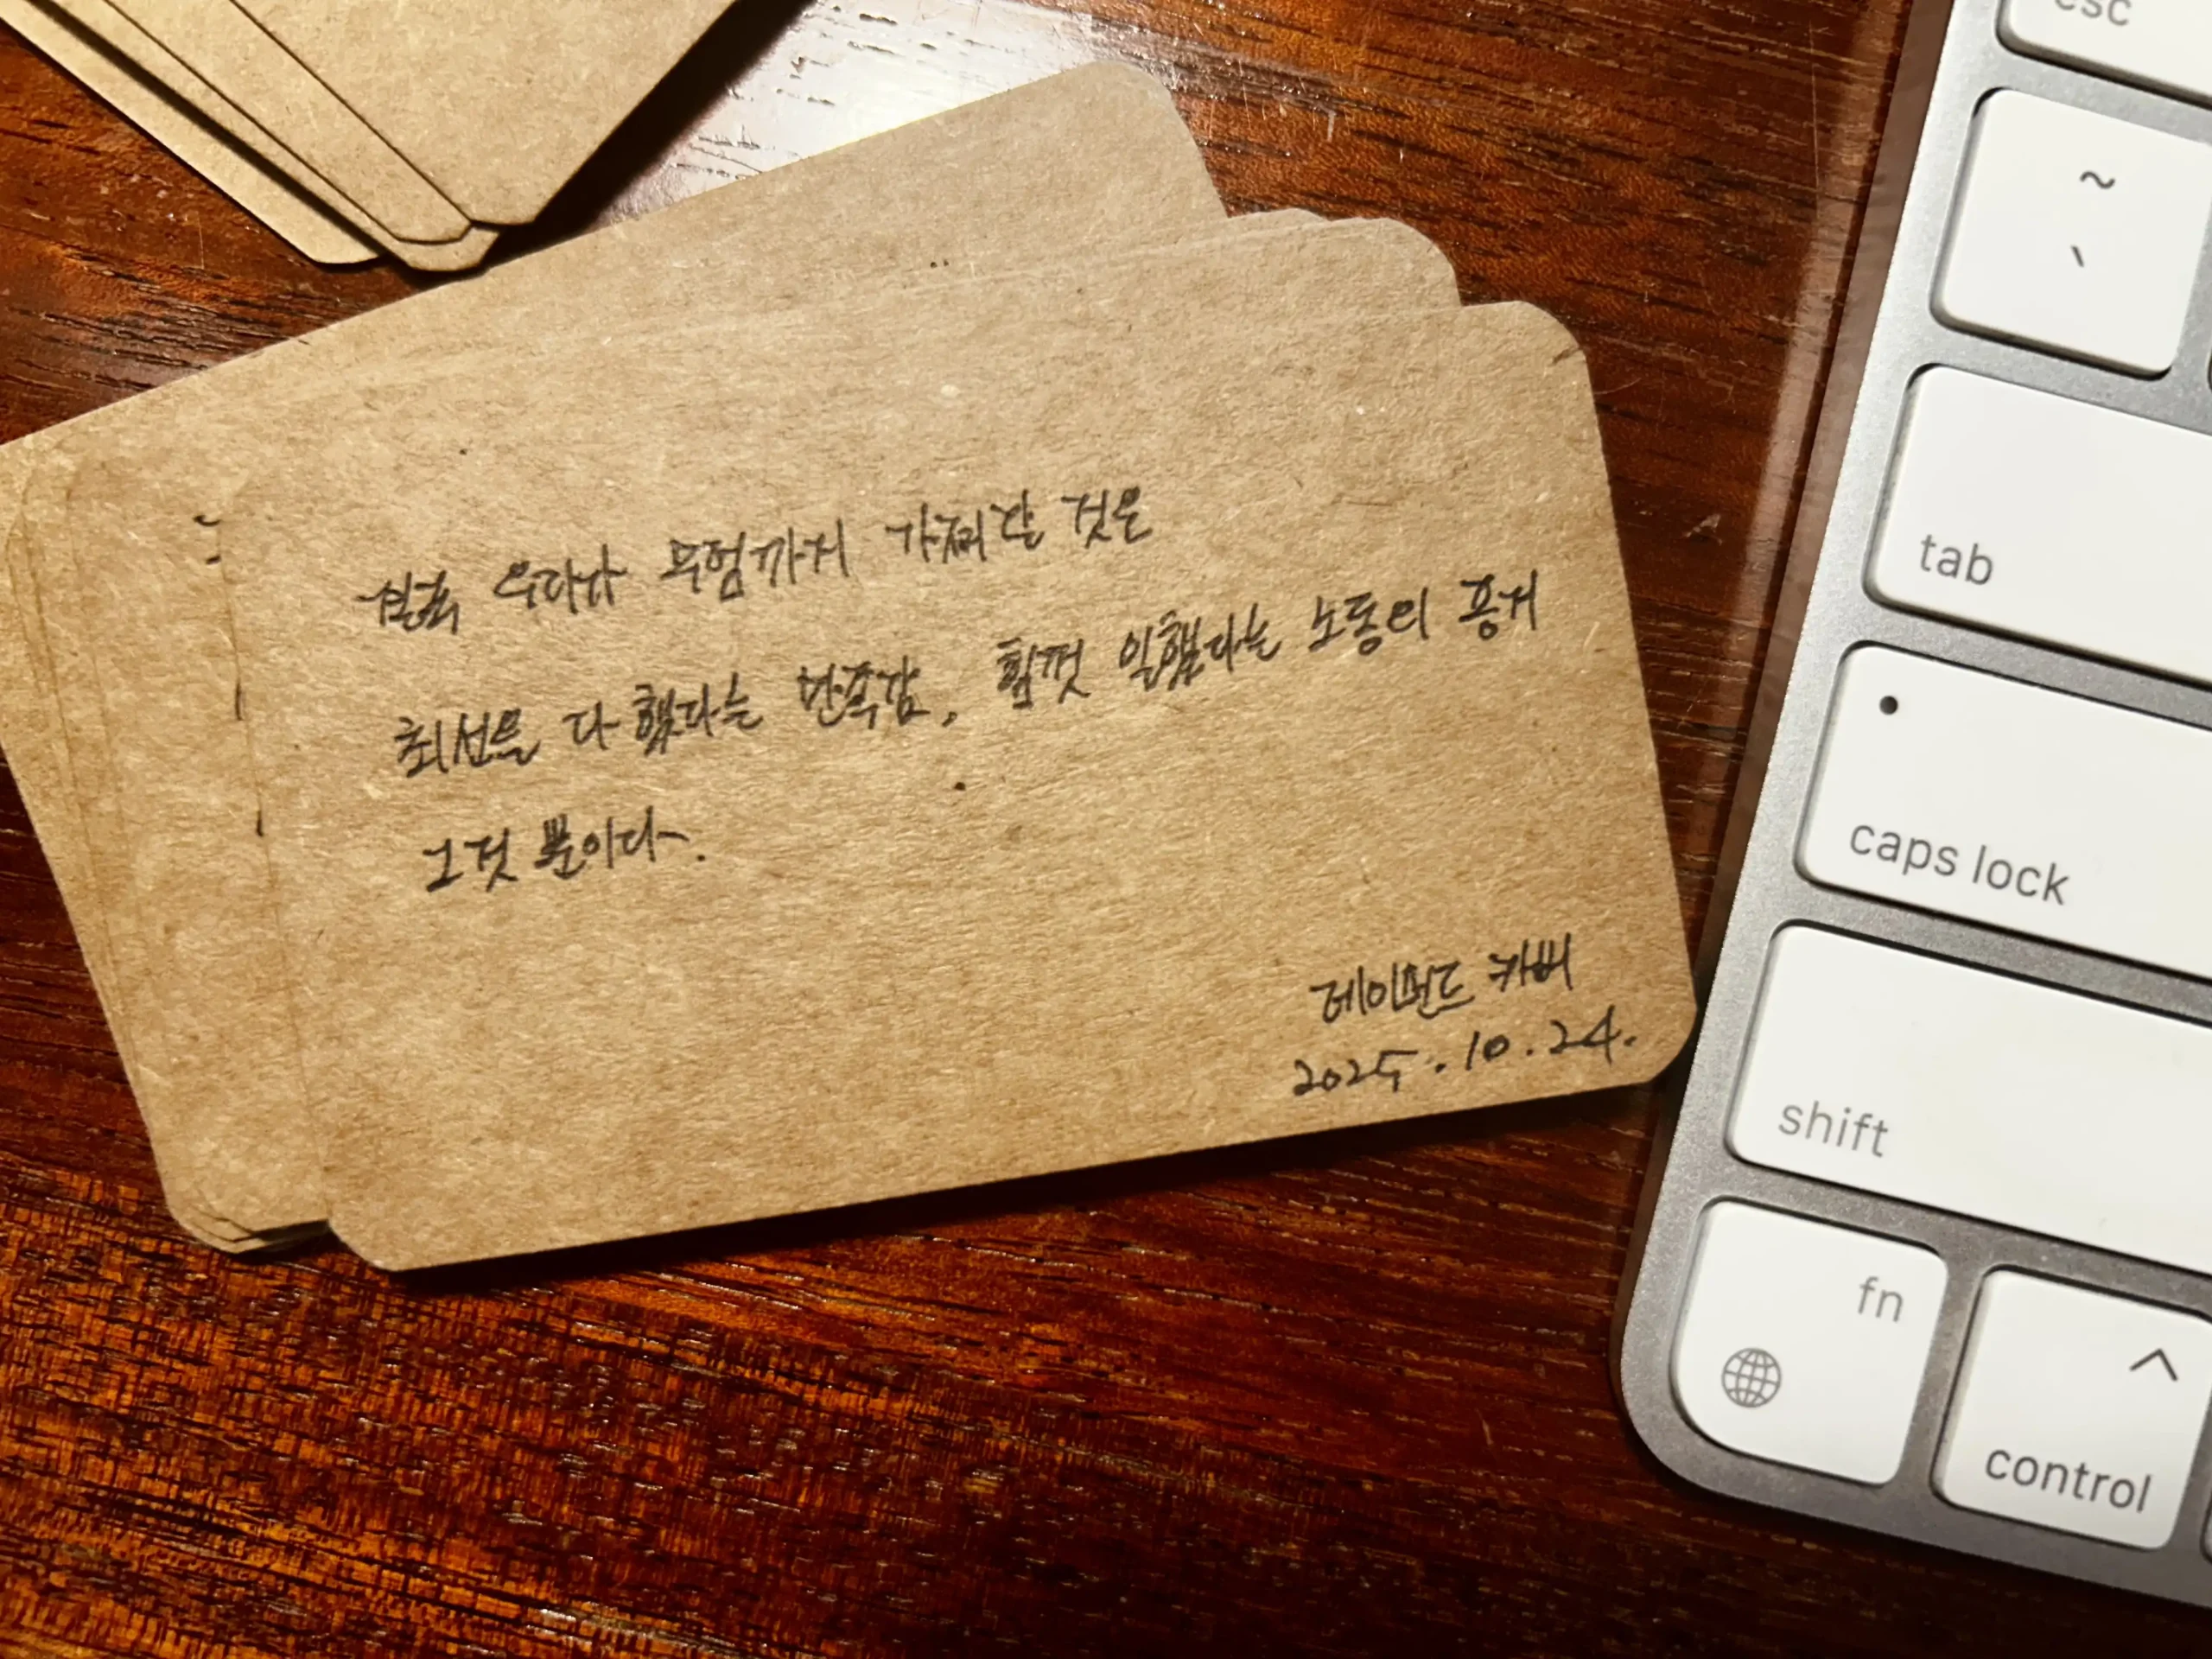 결국 우리가 무덤까지 가져갈 것은
최선을 다 했다는 만족감, 힘껏 일했다는 노동의 증거
그것 뿐이다.
레이먼드 카버
2025. 10. 24.
esc
~
`
tab
caps lock
shift
fn
control